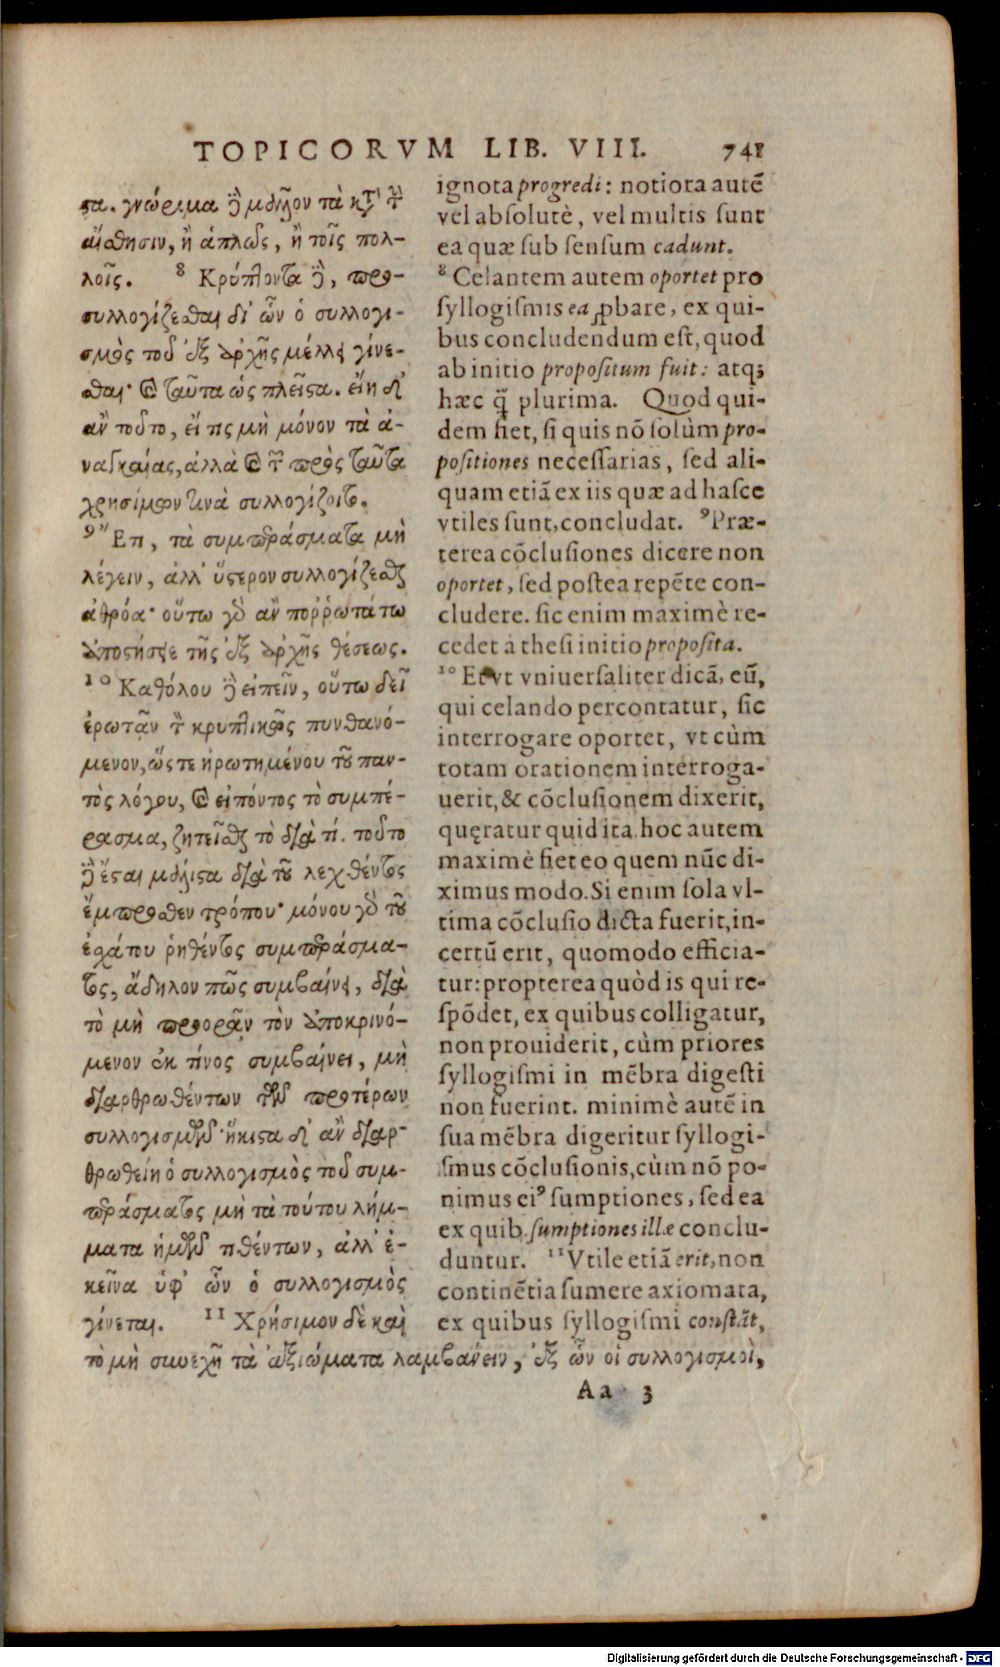 TOPICORVM LIB. VIII. 741
στα. γνώριμα δὲ μᾶλλον τὰ κατὰ τὴν
αἴσθησιν, ἢ ἁπλῶς, ἢ τοῖς πολ-
λοῖς. 8 Κρύπτοντα δὲ, προ-
συλλογίζεσθαι δι' ὧν ὁ συλλογι-
σμὸς τοῦ ἐξ ἀρχῆς μέλλει γίνε-
σθαι· καὶ ταῦτα ὡς πλεῖστα. εἴη δ'
ἂν τοῦτο, εἴ τις μὴ μόνον τὰ ἀ-
ναγκαίας, ἀλλὰ καὶ τῶν πρὸς ταῦτα
χρησίμων τινὰ συλλογίζοιτο.
9 Ἔτι, τὰ συμπεράσματα μὴ
λέγειν, ἀλλ' ὕστερον συλλογίζεσθαι
ἀθρόα· οὕτω γὰρ ἂν πορρωτάτω
ἀποστήσειε τῆς ἐξ ἀρχῆς θέσεως.
10 Καθόλου δὲ εἰπεῖν, οὕτω δεῖ
ἐρωτᾶν τὸν κρυπτικῶς πυνθανό-
μενον, ὥστε ἠρωτημένου τοῦ παν-
τὸς λόγου, καὶ εἰπόντος τὸ συμπέ-
ρασμα, ζητεῖσθαι τὸ διὰ τί. τοῦτο
δὲ ἔσται μάλιστα διὰ τοῦ λεχθέντος
ἔμπροσθεν τρόπου· μόνου γὰρ τοῦ
ἐσχάτου ῥηθέντος συμπεράσμα-
τος, ἄδηλον πῶς συμβαίνει, διὰ
τὸ μὴ προορᾶν τὸν ἀποκρινό-
μενον ἐκ τίνος συμβαίνει, μὴ
διαρθρωθέντων τῶν προτέρων
συλλογισμῶν· ἥκιστα δ' ἂν διαρ-
θρωθείη ὁ συλλογισμὸς τοῦ συμ-
περάσματος μὴ τὰ τούτου λήμ-
ματα ἡμῶν τιθέντων, ἀλλ' ἐ-
κεῖνα ὑφ' ὧν ὁ συλλογισμὸς
γίνεται. 11 Χρήσιμον δὲ καὶ
τὸ μὴ συνεχῆ τὰ ἀξιώματα λαμβάνειν, ἐξ ὧν οἱ συλλογισμοὶ,
ignota progredi: notiora autē
vel absolutè, vel multis sunt
ea quæ sub sensum cadunt.
8 Celantem autem oportet pro
syllogismis ea ꝓbare, ex qui-
bus concludendum est, quod
ab initio propositum fuit: atq;
hæc q̃ plurima. Quod qui-
dem fiet, si quis nō solùm pro-
positiones necessarias, sed ali-
quam etiā ex iis quæ ad hasce
vtiles sunt, concludat. 9 Præ-
terea cōclusiones dicere non
oportet, sed postea repēte con-
cludere. sic enim maximè re-
cedet à thesi initio proposita.
10 Et vt vniuersaliter dicā, eū,
qui celando percontatur, sic
interrogare oportet, vt cùm
totam orationem interroga-
uerit, & cōclusionem dixerit,
quęratur quid ita. hoc autem
maximè fiet eo quem nūc di-
ximus modo. Si enim sola vl-
tima cōclusio dicta fuerit, in-
certū erit, quomodo efficia-
tur: propterea quòd is qui re-
spōdet, ex quibus colligatur,
non prouiderit, cùm priores
syllogismi in mēbra digesti
non fuerint. minimè autē in
sua mēbra digeritur syllogi-
smus cōclusionis, cùm nō po-
nimus eiꝰ sumptiones, sed ea
ex quib. sumptiones illæ conclu-
duntur. 11 Vtile etiā erit, non
continētia sumere axiomata,
ex quibus syllogismi constāt,
Aa 3
Digitalisierung gefördert durch die Deutsche Forschungsgemeinschaft - DFG